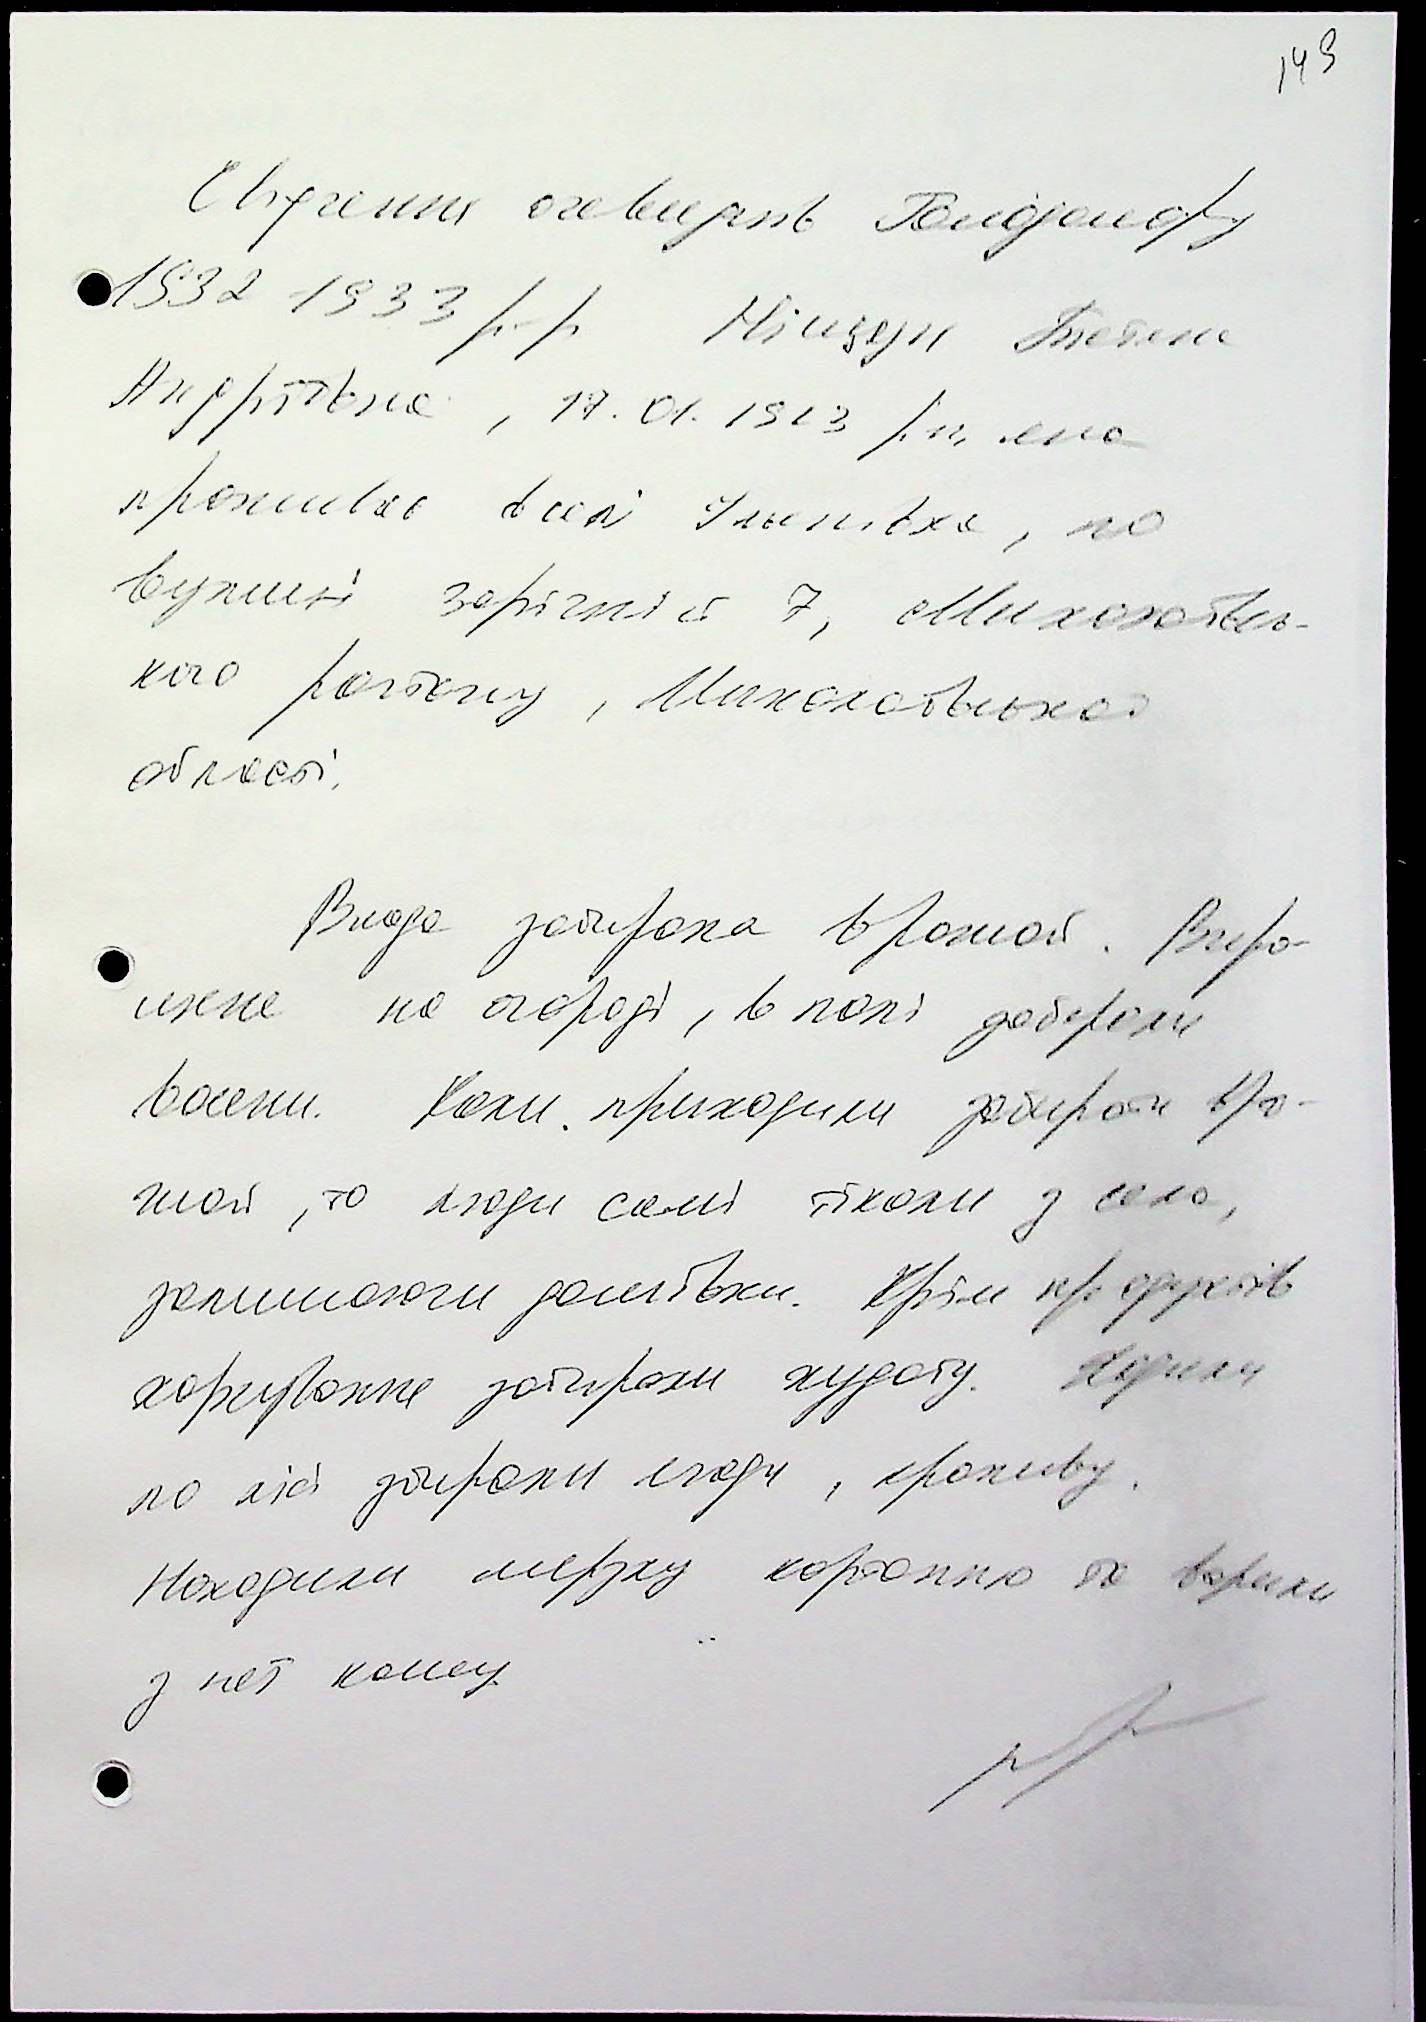 149
Свідчення очевидців Голодомору
1932 1933 р-р Тетяна
Андріївна, 17.01.1923 р.н, яка
проживає в селі Ульянівка, по
вулиці Зарічній 7, Миколаївсь-
кого району, Миколаївської
області.
Влада забирала врожай. Виро-
щене на огороді, в полі забирали
восени. Коли приходили забирати вро-
жай, то люди самі тікали з села,
залишаючи домівки. Крім продуктів
харчування забирали худобу. Ходили
по лісі збирали ягоди, кропиву.
Находили мерзлу картоплю та варили
з неї кашу.